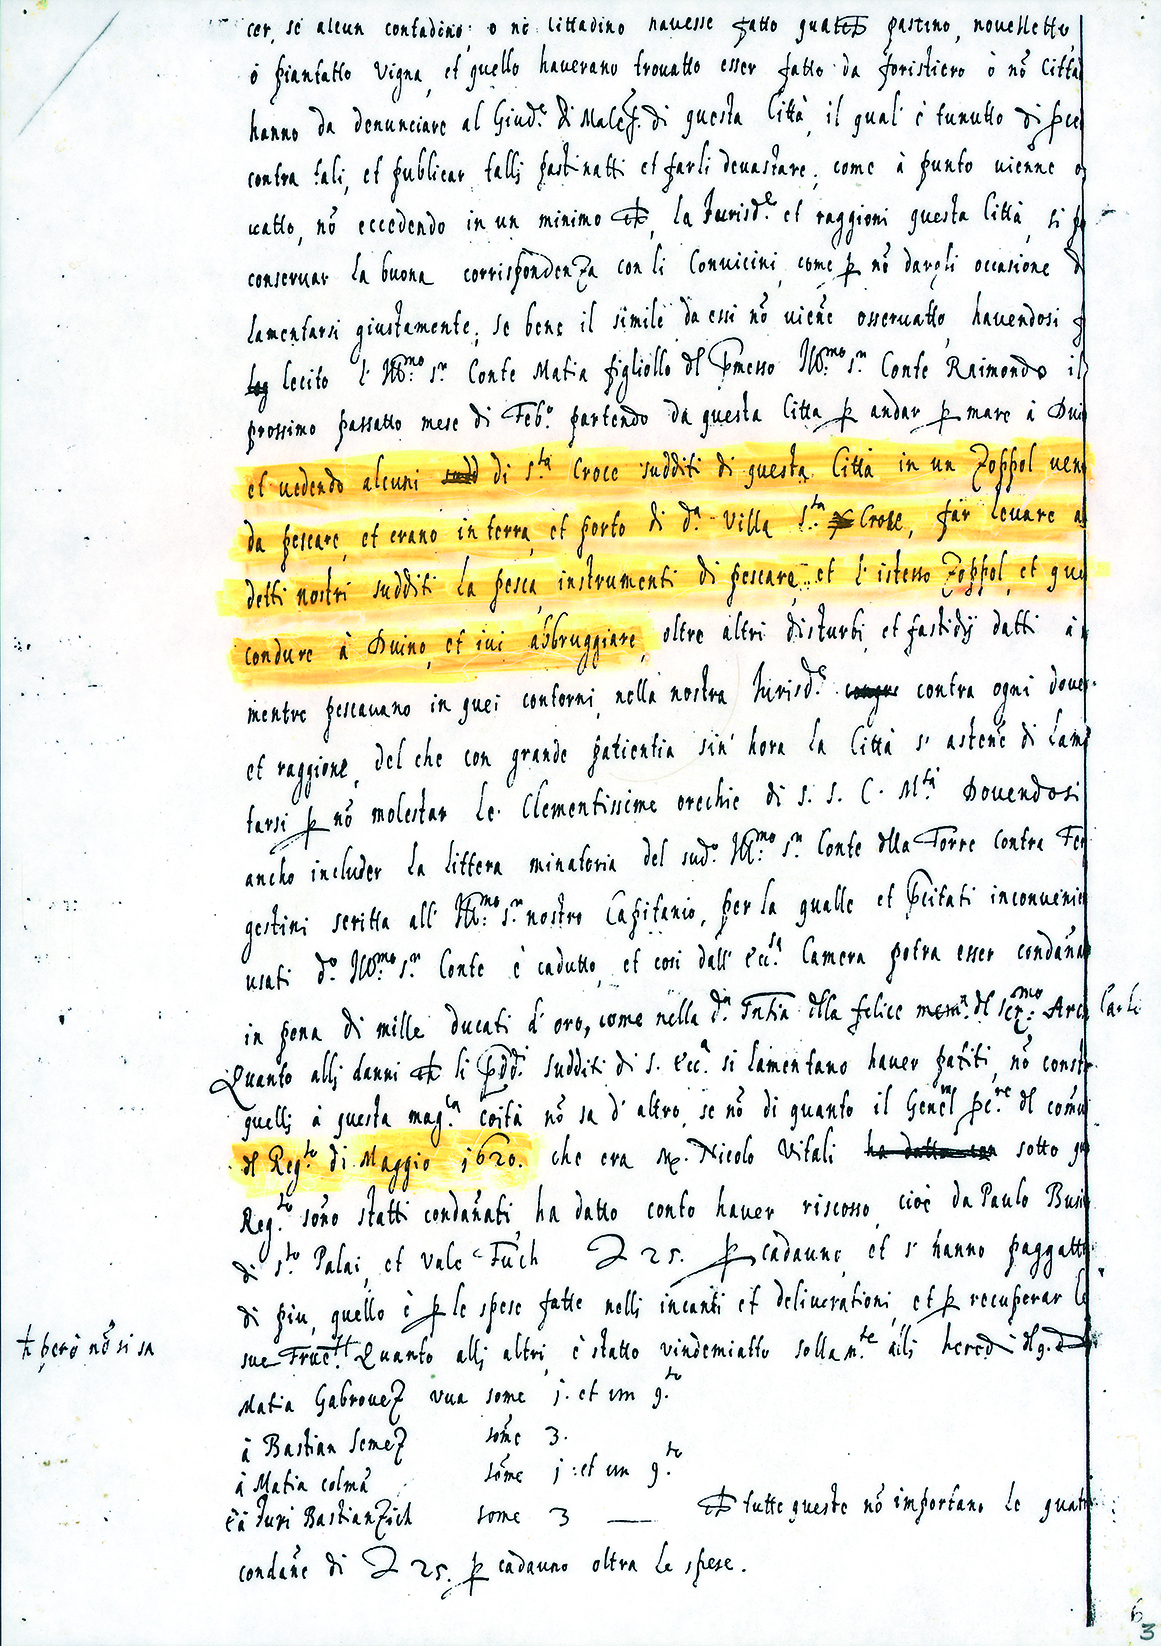 cer, se alcun contadino, o nō cittadino havesse fatto pastino, novelletto,
ò piantatto vigna, et quello haverano trovatto esser fatto da foristiero ò nō Citta
hanno da denunciare al Giud.e di Malef. di questa Città, il qual è tenutto di
contra tali, et publicar talli pastinatti et farli devastare, come à punto vienne
vatto, nō eccedendo in un minimo la Jurisd.e et raggioni questa Città, si
conservar la buona corrispondenza con li Convicini, come p nō dargli occasione d
lamentarsi giustamente, se bene il simile da essi nō vieñe osservatto, havendosi f
lecito l' Ill.mo s.r Conte Matia figliollo dl pmesso Ill.mo s.r Conte Raimondo il
prossimo passatto mese di Feb.o partendo da questa Citta p andar p mare à Dui
et vedendo alcuni di S.ta Croce sudditi di questa Città in un Zoppol ven
da pescare, et erano in terra, et porto di d.a Villa S.ta Croce, far levare a
detti nostri sudditi la pesca, instrumenti di pescare, et l' istesso Zoppol, et que
condure à Duino, et ivi abbruggiare, oltre altri disturbi, et fastidij datti à
mentre pescavano in quei contorni, nella nostra Jurisd.e contra ogni dover
et raggione, del che con grande patientia sin' hora la Città s' asteñe di Lam
tarsi p nō molestar le Clementissime orechie di S. S. C. M.tà Dovendosi
ancho includer la littera minatoria del sud.o Ill.mo s.r Conte dlla Torre contra
gestini scritta all' Ill.mo s.r nostro Capitanio, per la qualle et pcitati inconvenie
usati d.o Ill.mo s.r Conte è cadutto, et cosi dall' ecc.sa Camera potra esser condaña
in pena di mille ducati d' oro, come nella d.a dlla felice mem.a dl Ser.mo Arc. Carlo
Quanto allj danni li pdd.i sudditi di S. Ecc.a si lamentano haver patiti, nō const
quelli à questa mag.ca coītà nō sa d' altro, se nō di quanto il Genēl dl comū
dl Reg.to di Maggio 1620. che era Nicolo Vitali ha datto sotto
Reg.to sono statti condañati, ha datto conto haver riscosso, cioè da Paulo Busi
di S.to Palai, et Vale Fuch 25. p cadauno, et s' hanno paggatto
di piu, quello è p le spese fatte nelli incanti et deliverationi, et p recuperar le
però nō si sa
sue Quanto allj altri, è statto vindemiatto sollam.te alli heredi
Matia Gabrovez vua some j. et un q.to
à Bastian Semez some 3.
à Matia colmā some j. et un q.to
e à Juri Bastianzich some 3 — tutte queste nō importano le
condañe di 25. p cadauno oltra le spese.
6
3